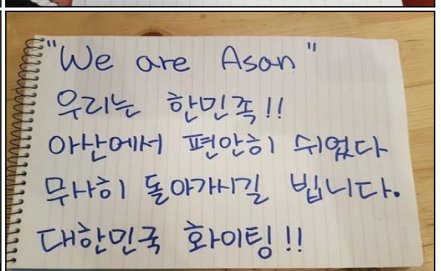 "We are Asan"
우리는 한민족!!
아산에서 편안히 쉬었다
무사히 돌아가시길 빕니다.
대한민국 화이팅!!